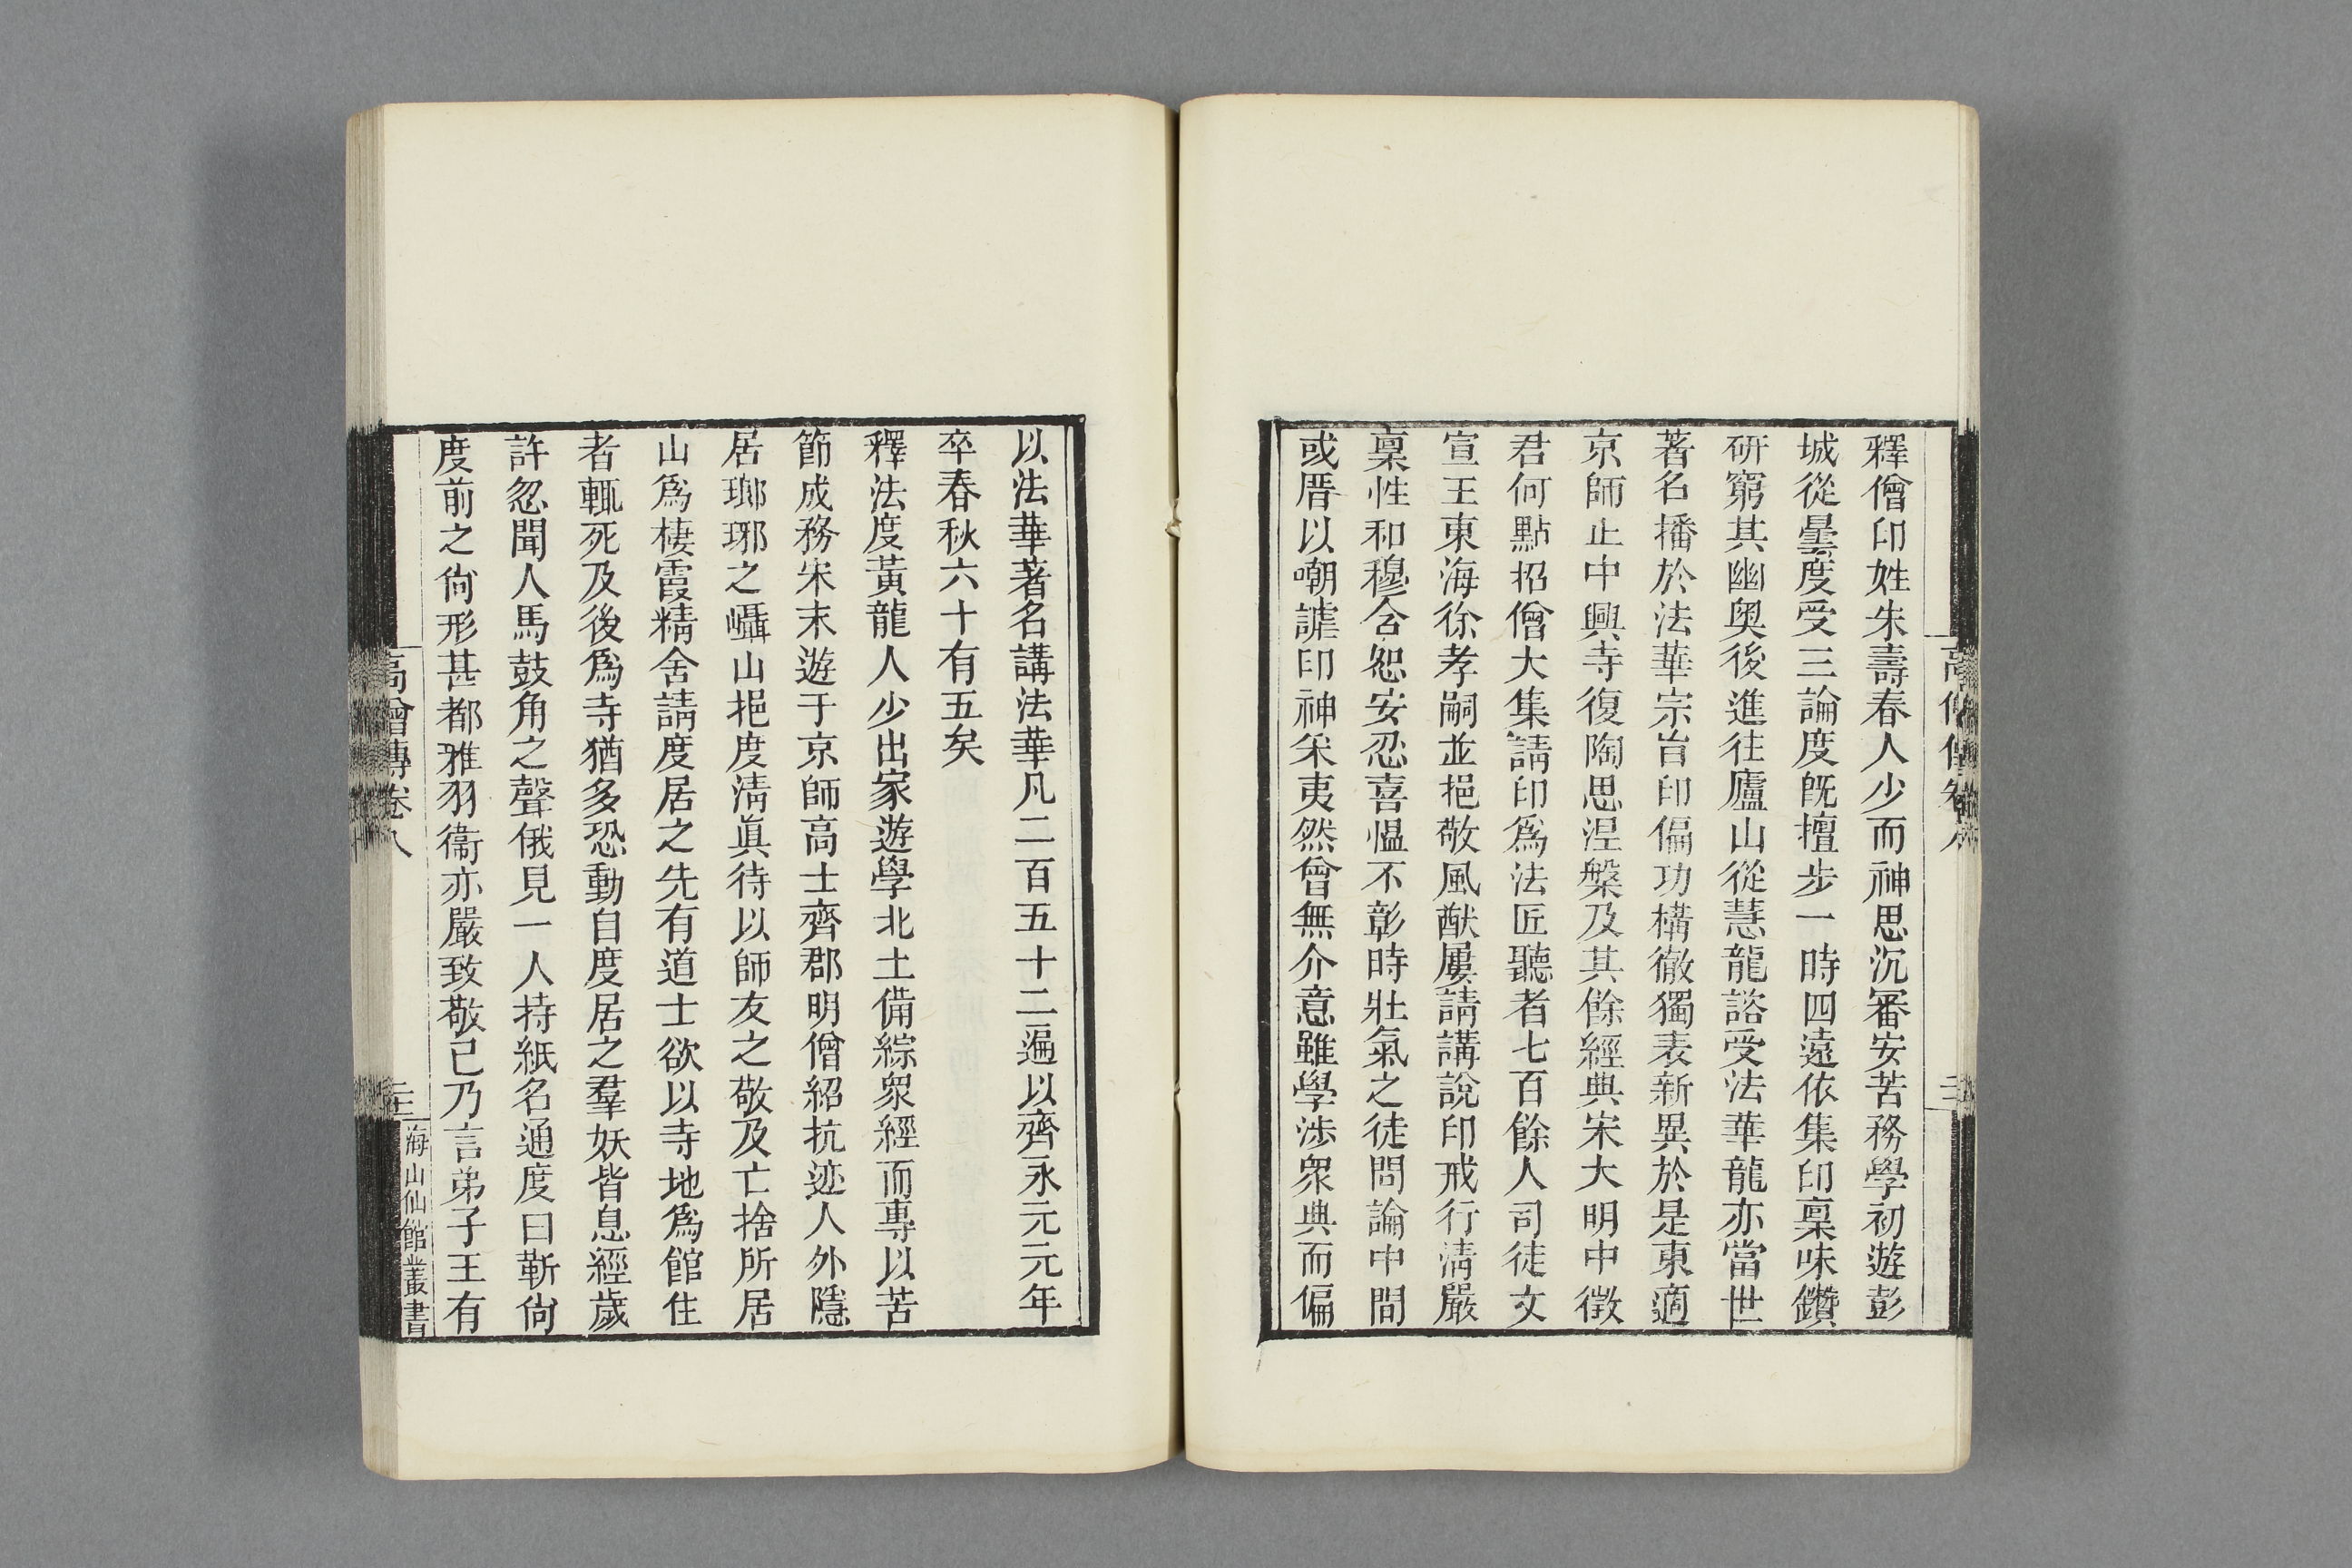 釋僧印姓朱壽春人少而神思沉審安苦務學初遊彭
城從曇度受三論度旣擅步一時四遠依集印稟味鑽
硏窮其幽奧後進往廬山從慧龍諮受法華龍亦當世
著名播於法華宗旨印偏功構徹獨表新異於是東適
京師止中興寺復陶思涅槃及其餘經典宋大明中徵
君何點招僧大集請印爲法匠聽者七百餘人司徒文
宣王東海徐孝嗣並挹敬風猷屢請講說印戒行淸嚴
稟性和穆含恕安忍喜慍不彰時壯氣之徒問論中間
或厝以嘲謔印神釆夷然曾無介意雖學涉衆典而偏
以法華著名講法華凡二百五十二遍以齊永元元年
卒春秋六十有五矣
釋法度黃龍人少出家遊學北土備綜衆經而專以苦
節成務宋末遊于京師高士齊郡明僧紹抗迹人外隱
居瑯琊之㠌山挹度淸眞待以師友之敬及亡捨所居
山爲棲霞精舍請度居之先有道士欲以寺地爲館住
者輒死及後爲寺猶多恐動自度居之羣妖皆息經歲
許忽聞人馬鼓角之聲俄見一人持紙名通度曰靳尙
度前之尙形甚都雅羽衞亦嚴致敬已乃言弟子王有
高僧傳卷八
海山仙館叢書